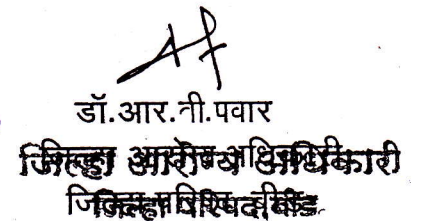 डॉ.आर.ती.पवार
जिल्हा आरोग्य अधिकारी
जिल्हा परिषद बीड